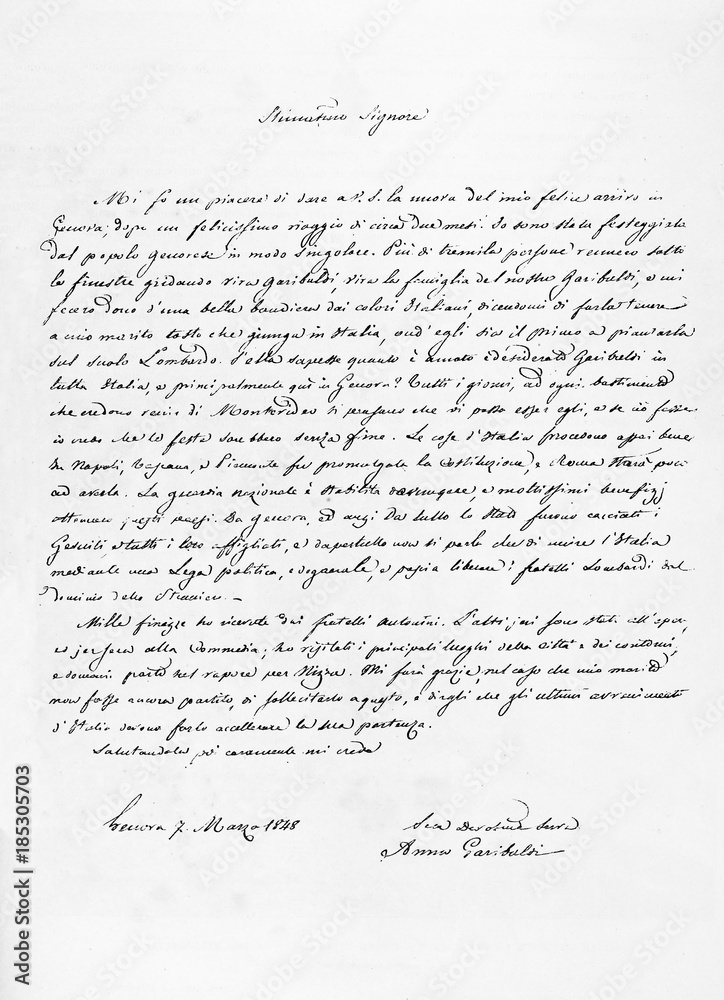 Stimatissimo Signore
Mi fo un piacere di dare a V. S. la nuova del mio felice arrivo in
Genova, dopo un felicissimo viaggio di circa due mesi. Io sono stata festeggiata
dal popolo genovese in modo singolare. Più di tremila persone vennero sotto
le finestre gridando viva Garibaldi, viva la famiglia del nostro Garibaldi, e mi
fecero dono d'una bella bandiera dai colori Italiani, dicendomi di farla tenere
a mio marito tosto che giunga in Italia, ond' egli sia il primo a piantarla
sul suolo Lombardo. S'ella sapesse quanto è amato e desiderato Garibaldi in
tutta Italia, e principalmente quì in Genova! Tutti i giorni, ad ogni bastimento
che credono venir di Montevideo si pensano che vi possa esser egli, e se ciò fosse
io credo che le feste sarebbero senza fine. Le cose d'Italia procedono assai bene
In Napoli, Toscana, e Piemonte fu promulgata la Costituzione, e Roma starà poco
ad averla. La guardia nazionale è stabilita e moltissimi benefizj
ottennero questi paesi. Da Genova, ed anzi da tutto lo Stato furono cacciati i
Gesuiti, e tutti i loro affigliati, e dapertutto non si parla che di unire l'Italia
mediante una Lega politica, e doganale, e poscia liberare i fratelli Lombardi dal
Dominio dello Straniero. —
Mille finezze ho ricevute dai fratelli Antonini. L'altr'jeri sono stata all'opera,
e jersera alla Commedia; ho visitati i principali luoghi della città e dei contorni,
e domani parto nel vapore per Nizza. Mi farà grazia, nel caso che mio marito
non fosse ancora partito, di sollecitarlo a questo, e dirgli che gli ultimi avvenimenti
d'Italia devono farlo accellerare la sua partenza.
Salutandola più caramente mi creda
Genova 7. Marzo 1848
Sua Devotma Serva
Anna Garibaldi
Adobe Stock | #185305703
Adobe Stock